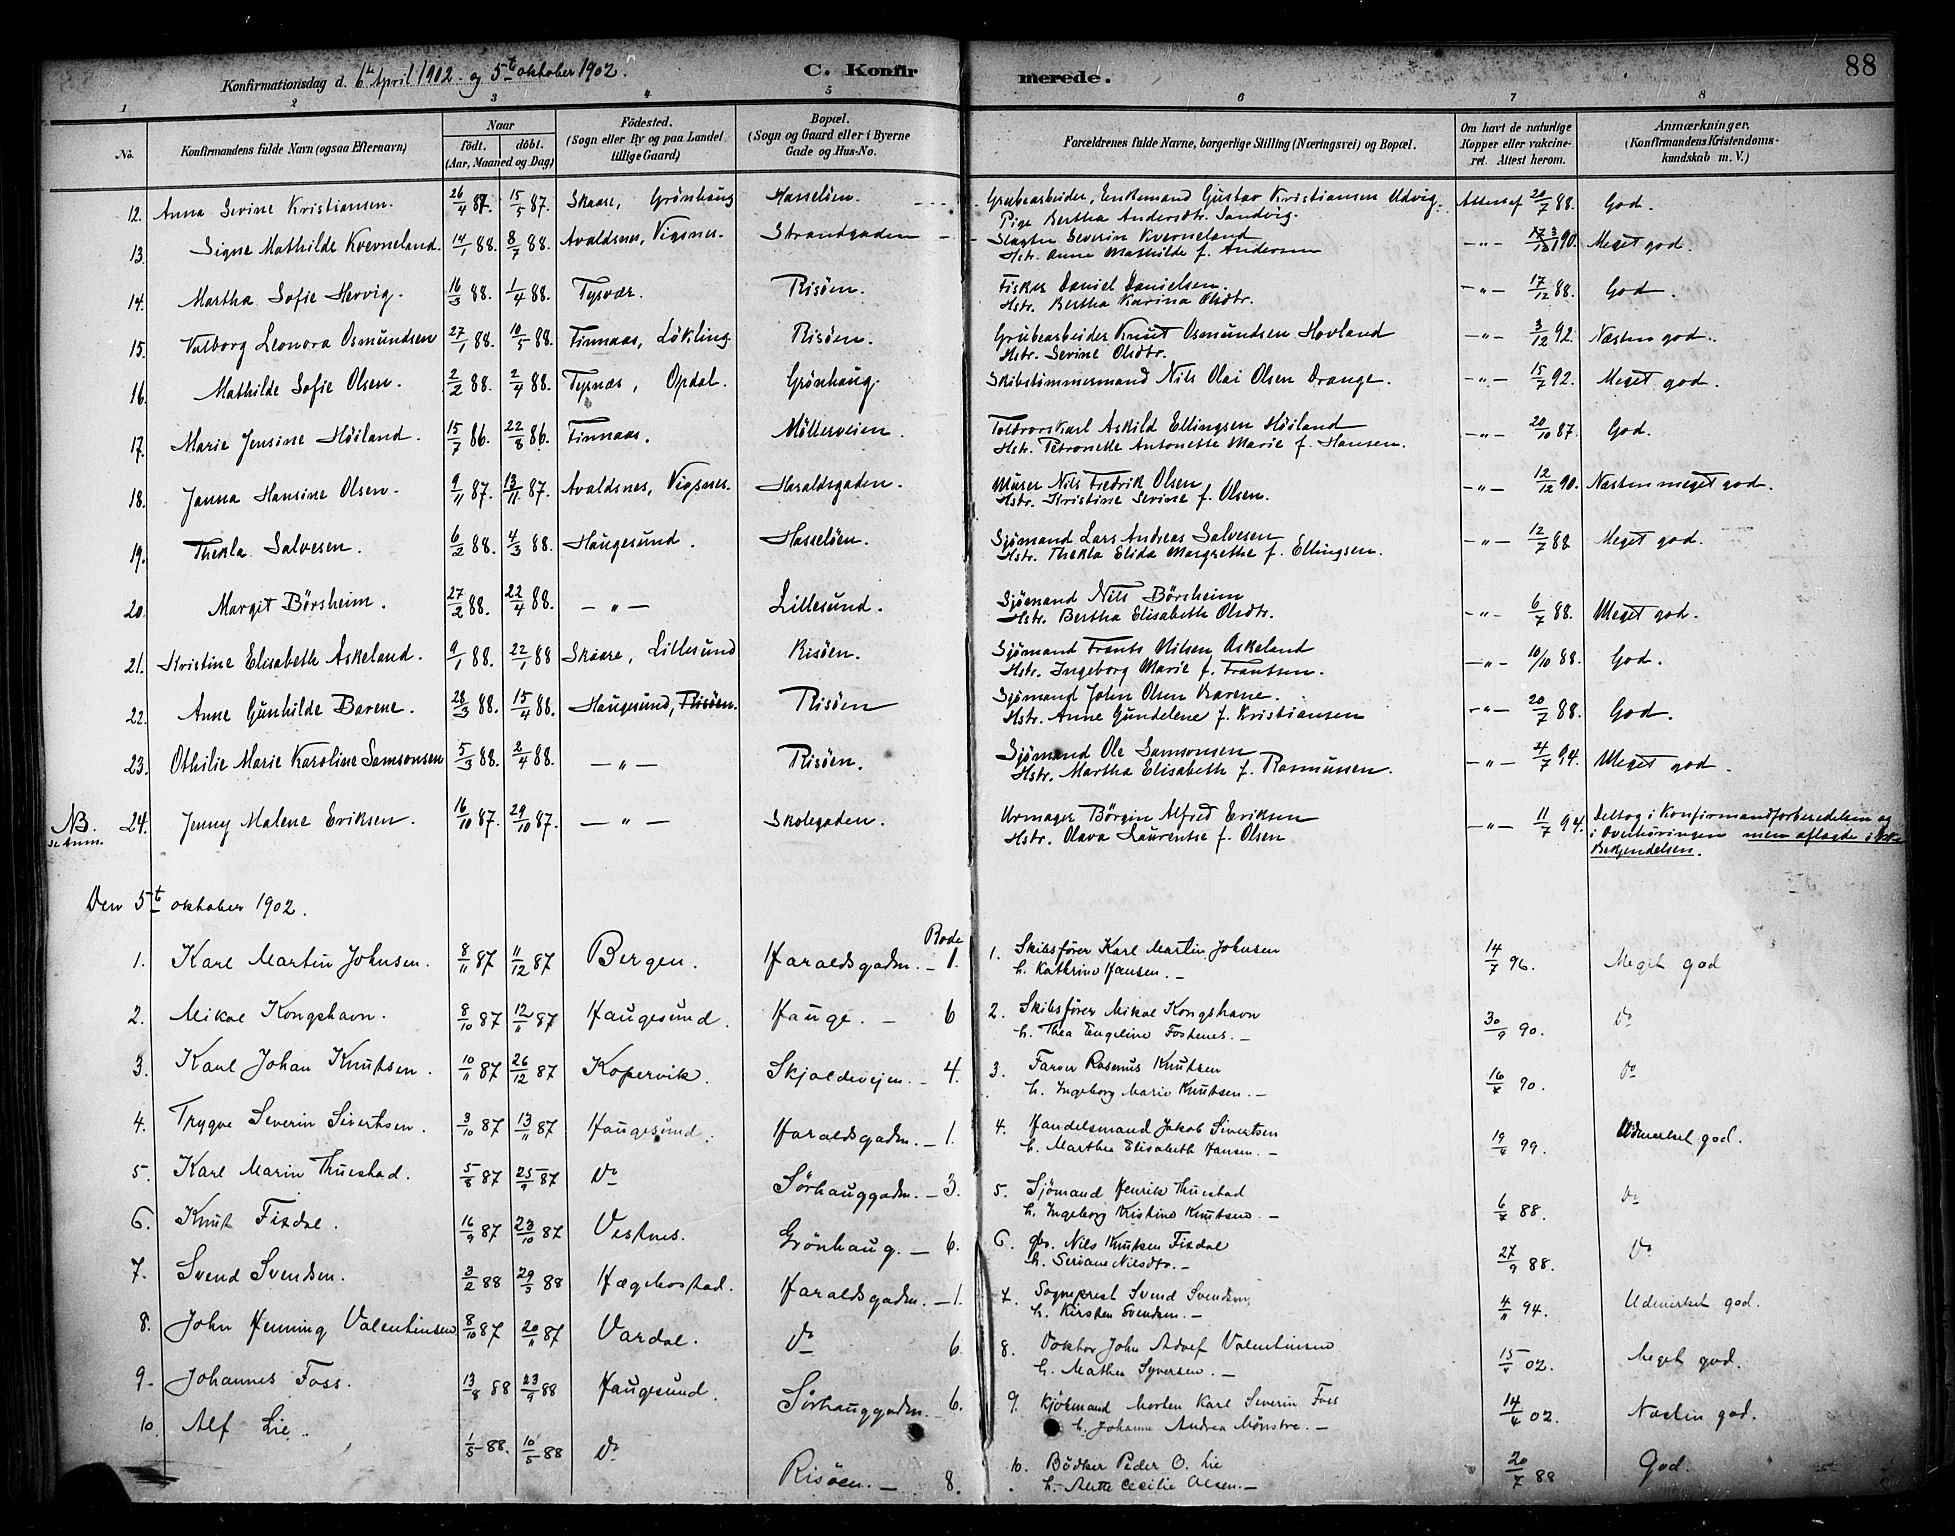 88
Konfirmationsdag d. 6te April 1902. og 5te oktober 1902. C. Konfirmerede.
1 2 3 4 5 6 7 8
No. Konfirmandens fulde Navn (ogsaa Efternavn) Naar födt. döbt. (Aar, Maaned og Dag) Födested. (Sogn eller By og paa Landet tillige Gaard) Bopæl. (Sogn og Gaard eller i Byerne Gade og Hus-No. Forældrenes fulde Navne, borgerlige Stilling (Næringsvei) og Bopæl. Om havt de naturlige Kopper eller vaccineret. Attest herom. Anmærkninger. (Konfirmandens Kristendomskundskab m. V.)
12. Anna Serine Kristiansen. 26/4 87. 15/5 87. Skaare, Grönhaug Hasselöen. Grubearbeider, Enkemand Gustav Kristiansen Udvig. Attest af 20/7 88. God.
Pige Bertha Andersdtr. Sandvig.
13. Signe Mathilde Kverneland. 14/1 88. 8/7 88. Avaldsnes, Vigsnes. Strandgaden Slagter Severin Kverneland 90. Meget god.
Hstr. Anne Mathilde f. Andersen
14. Martha Sofie Hervig. 16/3 88. 1/4 88. Tysvær. Risöen. Fisker Daniel Danielsen. —"— 17/12 88. God.
Hstr. Bertha Karina Olsdtr.
15. Valborg Leonora Osmundsen 27/1 88. 10/5 88. Finnaas, Lökling Risöen. Grubearbeider Knut Osmundsen Hovland —"— 3/12 92. Næsten god.
Hstr. Serine Olsdtr.
16. Mathilde Sofie Olsen. 2/2 88. 2/4 88. Tysnæs, Opdal. Grönhaug. Skibstömmermand Nils Olai Olsen Drange. —"— 15/7 92. Meget god.
17. Marie Jensine Höiland. 15/7 86. 22/8 86. Finnaas. Mölleveien. Toldrorskarl Askild Ellingsen Höiland —"— 20/10 87. God.
Hstr. Petronelle Antonette Marie f. Hansen.
18. Janna Hansine Olsen. 9/11 87. 13/11 87. Avaldsnes, Vigsnes. Haraldsgaden. Murer Nils Fredrik Olsen —"— 12/12 90. Næsten meget god.
Hstr. Kristine Serine f. Olsen.
19. Thekla Salvesen. 6/2 88. 4/3 88. Haugesund. Hasselöen. Sjömand Lars Andreas Salvesen —"— 12/7 88 Meget god.
Hstr. Thekla Elida Margrethe f. Ellingsen.
20. Margit Börsheim. 27/2 88. 22/4 88. —"— Lillesund. Sjömand Nils Börsheim —"— 6/7 88. Meget god.
Hstr. Bertha Elisabeth Olsdtr.
21. Kristine Elisabeth Askeland. 9/1 88. 22/1 88 Skaare, Lillesund Risöen. Sjömand Frants Nilsen Askeland —"— 10/10 88. God.
Hstr. Ingeborg Marie f. Frantsen.
22. Anne Gunhilde Barene. 28/3 88. 15/4 88. Haugesund, Risöen. Risöen Sjömand John Olsen Barene. —"— 20/7 88. God.
Hstr. Anne Gundelene f. Kristiansen
23. Othilie Marie Karoline Samsonsen 5/3 88. 2/4 88. —"— Risöen. Sjömand Ole Samsonsen —"— 4/7 94. Meget god.
Hstr. Martha Elisabeth f. Rasmussen.
NB. se Anm. 24. Jenny Malene Eriksen. 16/10 87. 29/10 87. —"— Skolegaden. Urmager Börgin Alfred Eriksen —"— 11/7 94. Deltog i Konfirmandforberedelsen og
Hstr. Olava Laurentse f. Olsen i Overhöringen men aflagde ikke
Bekjendelsen.
Den 5te oktober 1902.
Rode
1. Karl Martin Johnsen. 8/11 87 11/12 87 Bergen. Haraldsgaden. — 1. 1. Skibsförer Karl Martin Johnsen 14/7 96. Meget god
h. Kathrine Hansen. —
2. Mikal Kongshavn. 8/10 87 87 Haugesund. Hauge. — 6 2. Skibsförer Mikal Kongshavn 30/9 90. Do
h. Thea Engeline Fosenes. —
3. Karl Johan Knutsen. 10/11 87 26/12 87 Kopervik. Skjoldevejen. — 4. 3. Farver Rasmus Knutsen 90. Do
h. Ingeborg Marie Knutsen. —
4. Trygve Severin Sivertsen. 3/10 87 13/11 87 Haugesund. Haraldsgaden. — 1. 4. Handelsmand Jakob Sivertsen 99. Udmerket god.
h. Marthea Elisabeth Hansen. —
5. Karl Marin Thuestad. 5/8 87 25/9 87 Do Sörhauggaden. — 3. 5. Sjömand Henrik Thuestad 88. Do
h. Ingeborg Kristine Knutsen. —
6. Knut Fixdal. 16/9 87 23/10 87 Vestnes. Grönhaug. — 6. 6. Nils Knutsen Fixdal 27/9 88. Do
h. Seriane Nilsdtr. —
7. Svend Svendsen. 3/2 88 29/3 88 Hægebostad. Haraldsgaden. — 1. 7. Sogneprest Svend Svendsen, 4/11 94. Udmerket god.
h. Kirsten Svendsen. —
8. John Henning Valentinsen 8/10 87 20/11 87 Vardal. Do 6. 8. Doktor John Adolf Valentinsen 02. Meget god.
h. Mathea Syversen. —
9. Johannes Foss. 13/8 88 23/9 88 Haugesund. Sörhauggaden. 6. 9. Kjöbmand Morten Karl Severin Foss 14/4 02. Næsten god.
h. Johanne Andrea Mönstre. —
10. Alf Lie. 1/5 88. 10/5 88 Do Risöen. — 8. 10. Bödker Peder O. Lie 20/7 88 God.
h. Alette Cecilie Olsen. —